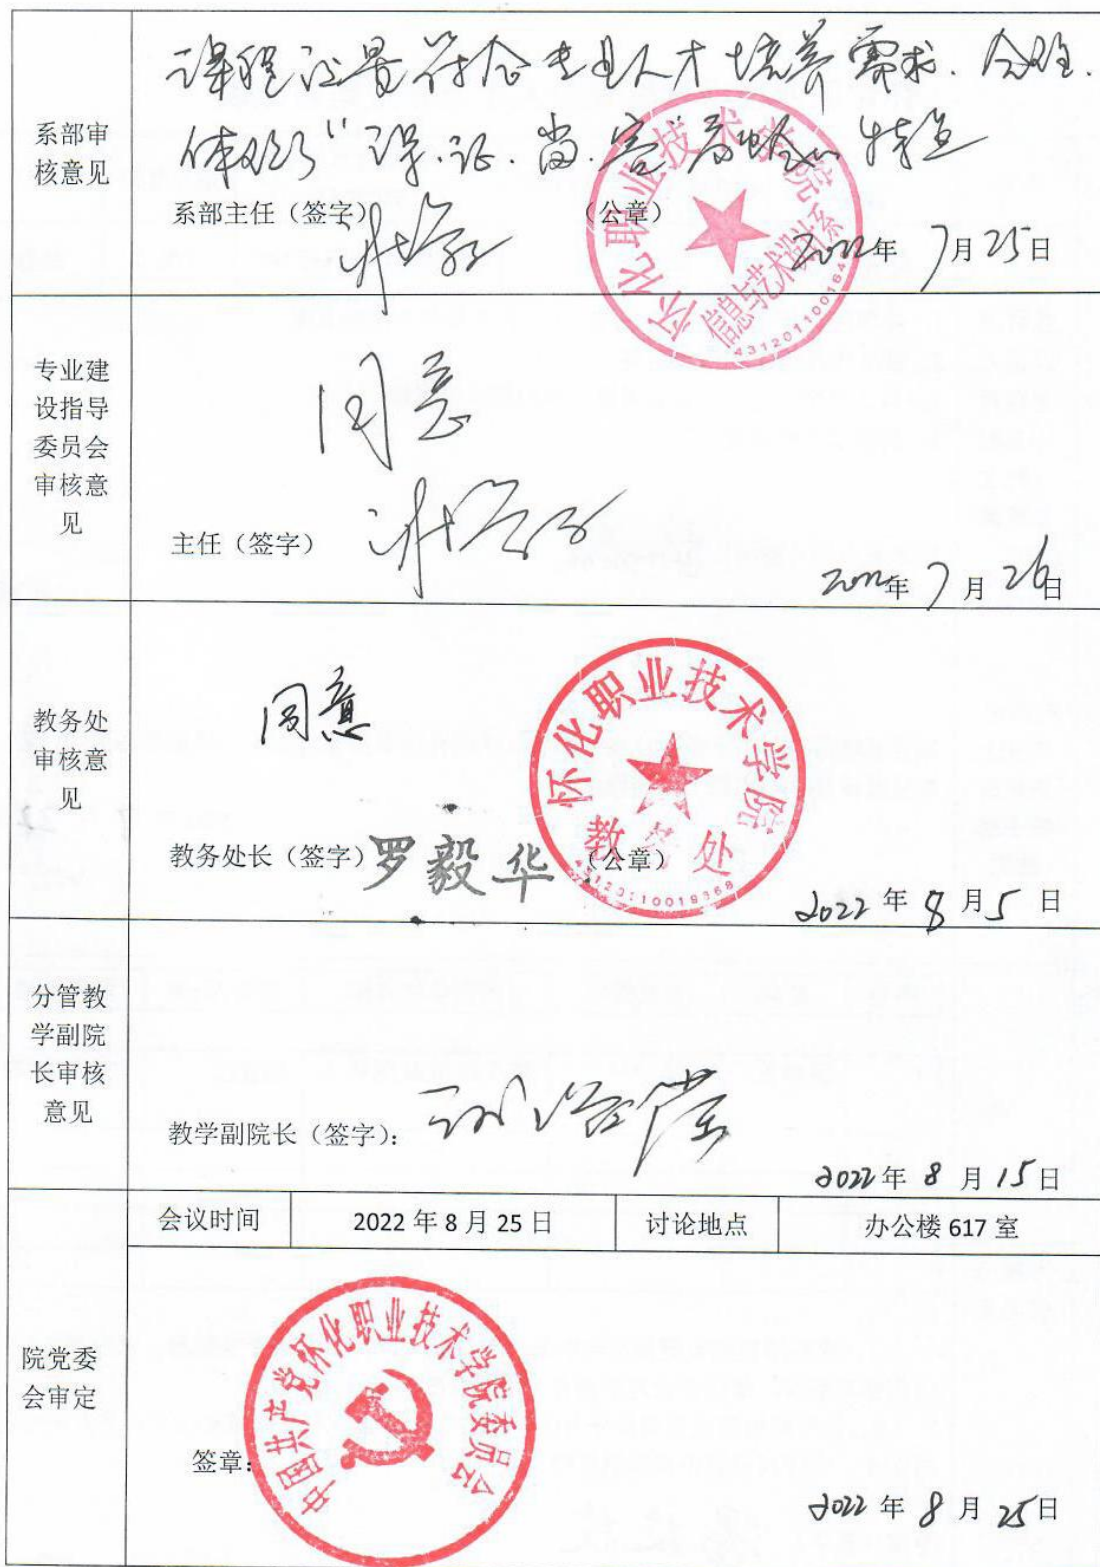 系部审
核意见
课程设置符合专业人才培养需求.合理.
体现了“课.证.岗.赛”的特色
系部主任（签字）
（公章）
2022年 7月25日
怀化职业技术学院
信息与艺术设计系
专业建
设指导
委员会
审核意
见
同意
主任（签字）
2022年 7月 26日
教务处
审核意
见
同意
怀化职业技术学院
教务处
教务处长（签字）罗毅华
（公章）
2022 年 8 月 5 日
分管教
学副院
长审核
意见
教学副院长（签字）：
2022年 8 月 15日
会议时间 2022 年 8 月 25 日 讨论地点 办公楼 617 室
院党委
会审定
中国共产党怀化职业技术学院委员会
签章：
2022 年 8 月 25日